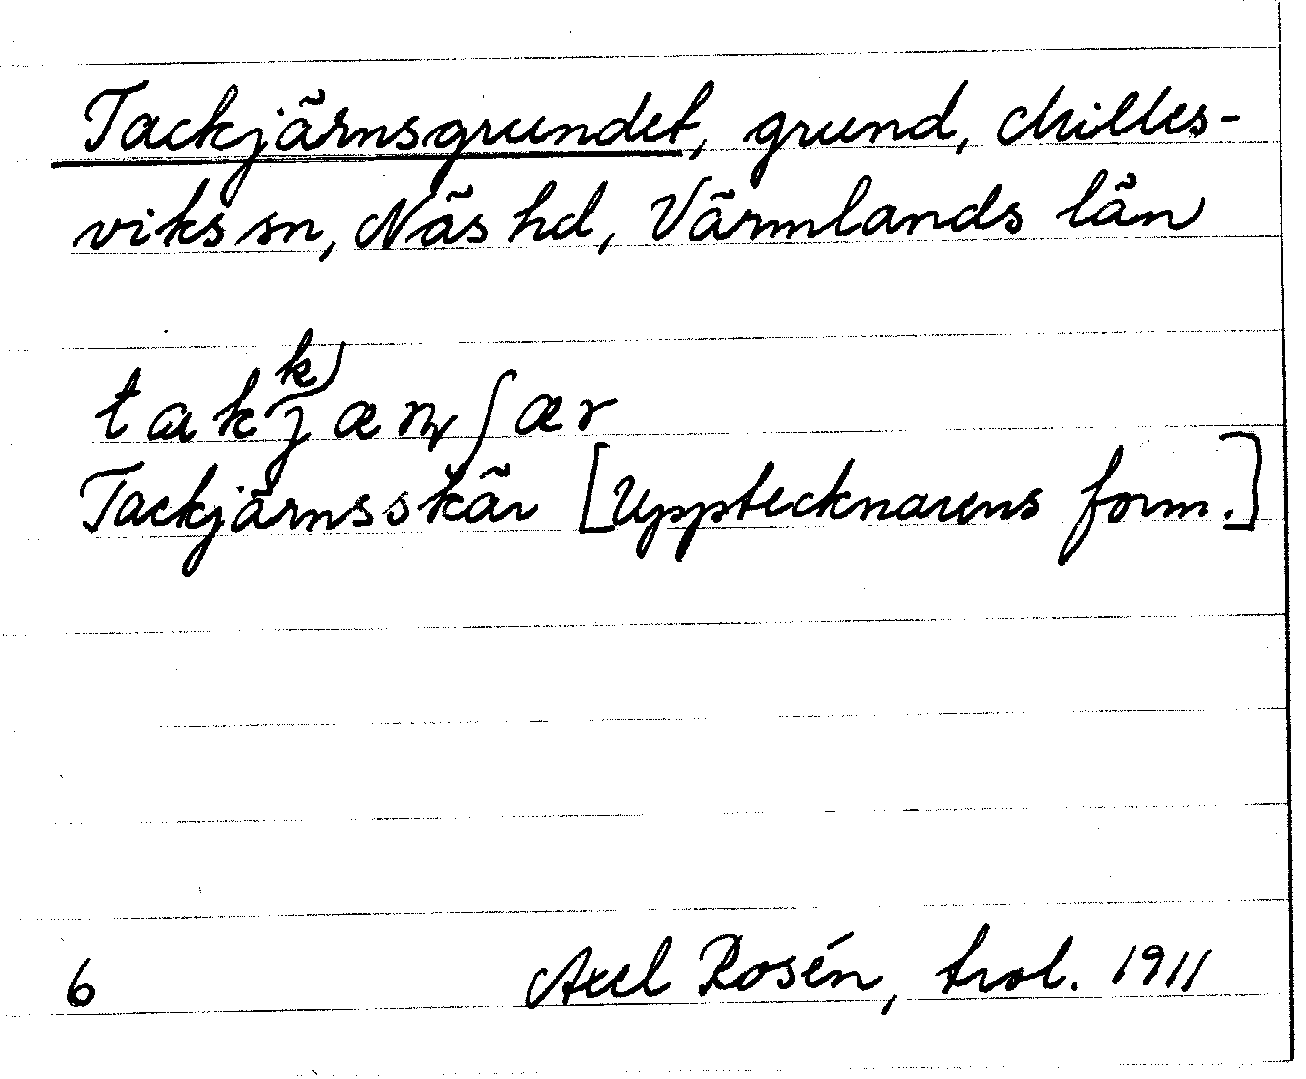 Tackjärnsgrundet, grund, Milles-
viks sn, Näs hd, Värmlands län
takj k) æɳʃær
Tackjärnsskär [Upptecknarens form.]
6 Axel Rosén, trol. 1911